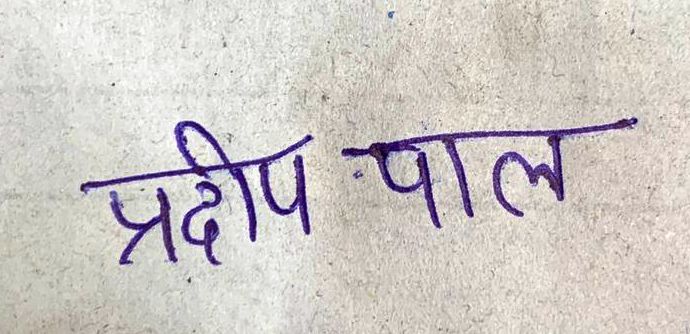 प्रदीप पाल